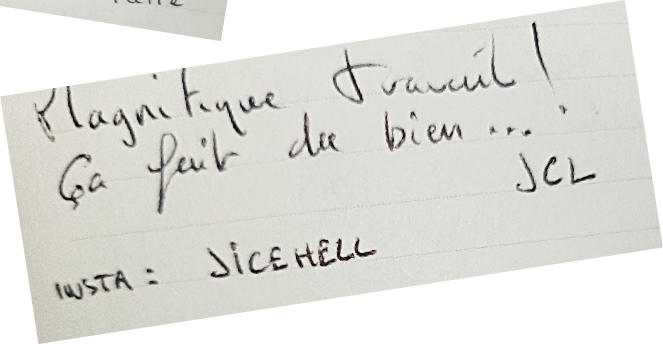 Magnifique travail !
Ça fait du bien ...
JCL
INSTA : JICEHELL